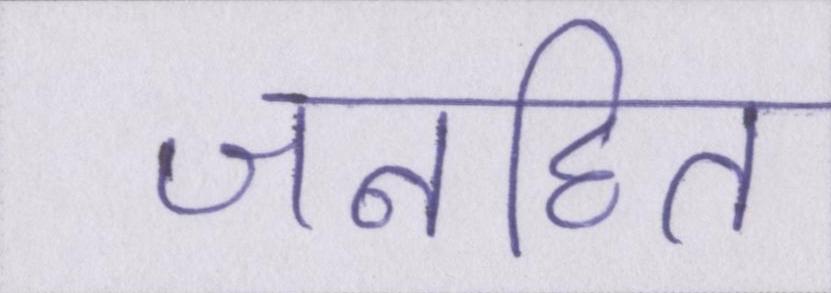 जनहित